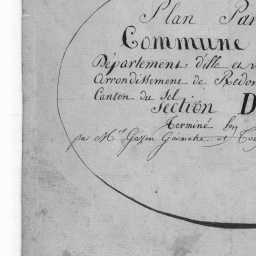 Plan Par
Commune
Département d'ille et v
Arrondissement de Redon
Canton du Sel
Section D
Terminé
par Mr. Géomètre et